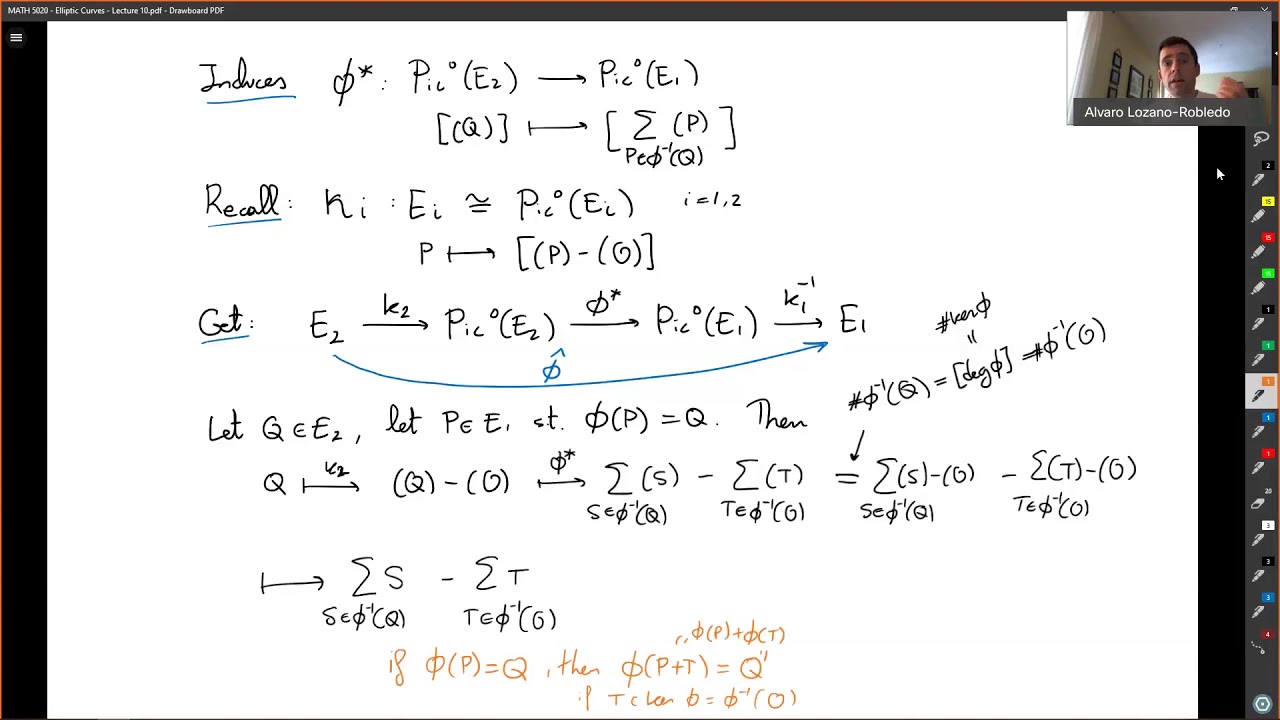 MATH 5020 - Elliptic Curves - Lecture 10.pdf - Drawboard PDF
Alvaro Lozano-Robledo
Induces φ* : Pic⁰(E₂) ⟶ Pic⁰(E₁)
[(Q)] ⟼ [ Σ (P) ]
P∈φ⁻¹(Q)
Recall: κi : Ei ≅ Pic⁰(Ei) i=1,2
P ⟼ [(P)-(O)]
Get: E₂ —κ₂→ Pic⁰(E₂) —φ*→ Pic⁰(E₁) —κ₁⁻¹→ E₁
φ̂
#ker φ
"
#φ⁻¹(Q) = [deg φ] = #φ⁻¹(O)
Let Q∈E₂, let P∈E₁ st. φ(P)=Q. Then
Q ⟼κ₂ (Q)-(O) ⟼φ* Σ(S) - Σ(T) = Σ(S)-(O) - Σ(T)-(O)
S∈φ⁻¹(Q) T∈φ⁻¹(O) S∈φ⁻¹(Q) T∈φ⁻¹(O)
⟼ ΣS - ΣT
S∈φ⁻¹(Q) T∈φ⁻¹(O)
φ(P)+φ(T)
if φ(P)=Q, then φ(P+T) = Q
if T∈ker φ = φ⁻¹(O)
2
15
15
15
1
1
1
1
1
20
3
3
3
4